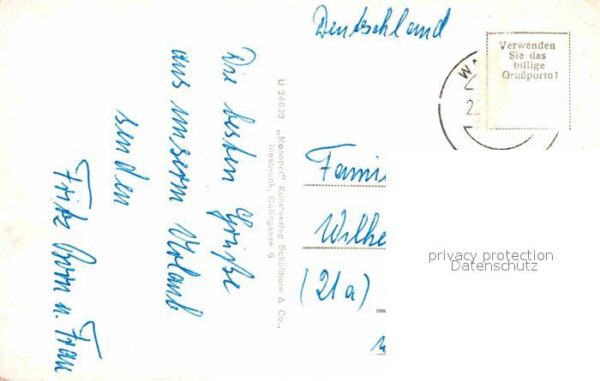 Deutschland
Verwenden
Sie das
billige
Grußporto!
Die besten Grüße
aus unserm Urlaub
senden
Fritz u. Frau
U 24622 „Monopol" Kunstverlag Schöllhorn & Co.,
Innsbruck, Colingasse 6
Fami
Wilhe
(21a)
privacy protection
Datenschutz